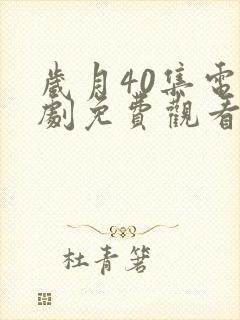 歲月40集電
劇免費觀看
杜青箬